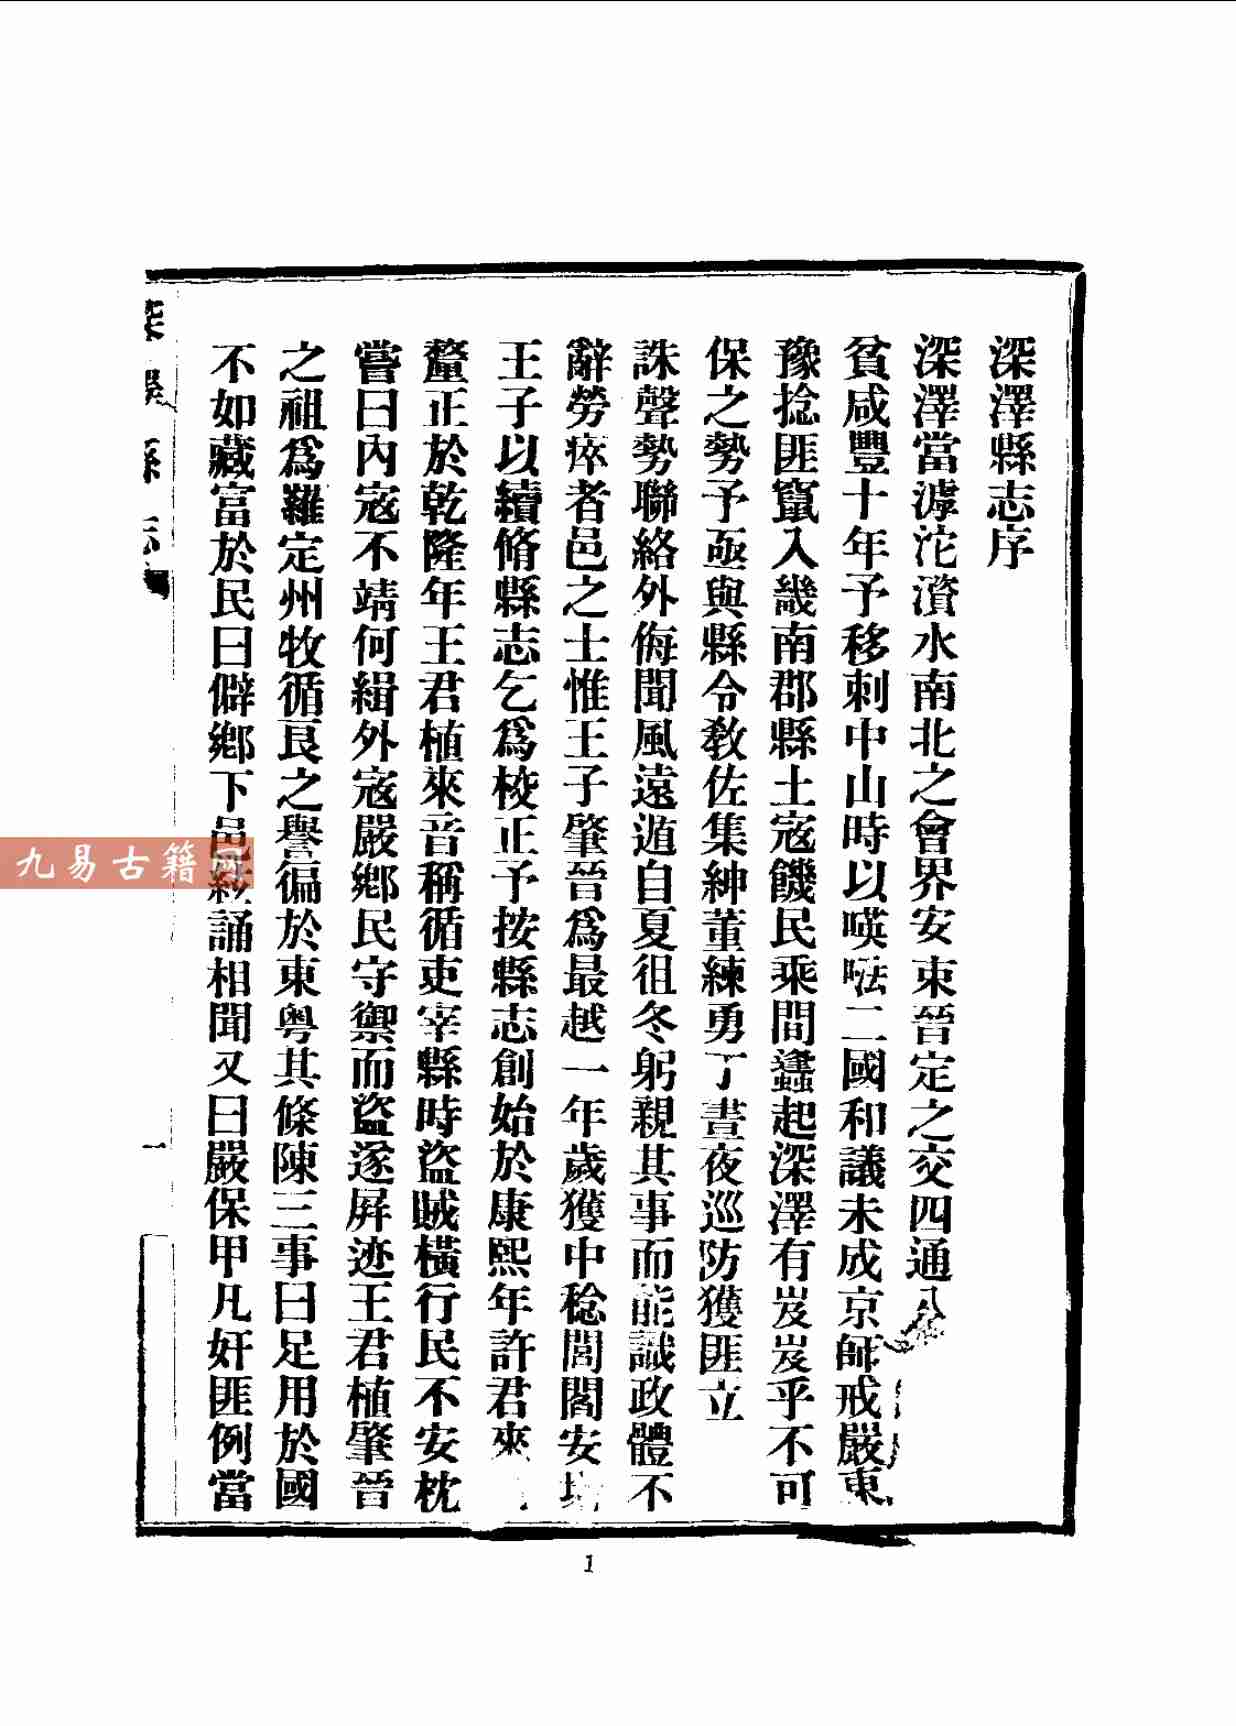 深澤縣志序
深澤當滹沱濱水南北之會界安束晉定之交四通八
貧咸豐十年予移刺中山時以㗲㗳二國和議未成京師戒嚴東
豫捻匪竄入畿南郡縣土寇饑民乘間蠭起深澤有岌岌乎不可
保之勢予亟與縣令敎佐集紳董練勇丁晝夜巡防獲匪立
誅聲勢聯絡外侮聞風遠遁自夏徂冬躬親其事而能識政體不
辭勞瘁者邑之士惟王子肇晉爲最越一年歲獲中稔閭閻安堵
王子以續脩縣志乞爲校正予按縣志創始於康熙年許君來
釐正於乾隆年王君植來音稱循吏宰縣時盜賊橫行民不安枕
嘗曰內寇不靖何緝外寇嚴鄉民守禦而盜遂屛迹王君植肇晉
之祖爲羅定州牧循良之譽徧於東粤其條陳三事曰足用於國
不如藏富於民曰僻鄉下邑絃誦相聞又曰嚴保甲凡奸匪例當
深澤縣志
一
1
九易古籍网